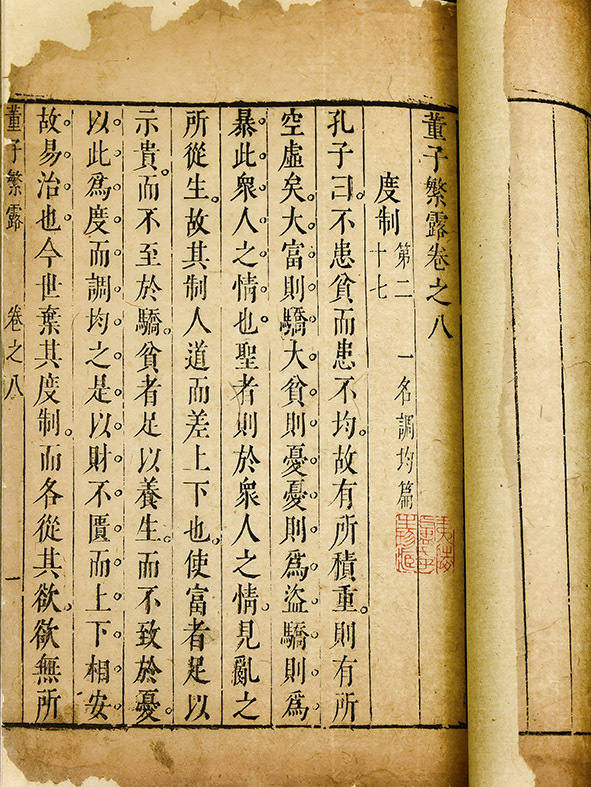 董子繁露卷之八
度制第二十七 一名調均篇
孔子曰不患貧而患不均故有所積重則有所
空虛矣大富則驕大貧則憂憂則爲盜驕則爲
暴此衆人之情也聖者則於衆人之情見亂之
所從生故其制人道而差上下也使富者足以
示貴而不至於驕貧者足以養生而不致於憂
以此爲度而調均之是以財不匱而上下相安
故易治也今世棄其度制而各從其欲欲無所
董子繁露 卷之八 一